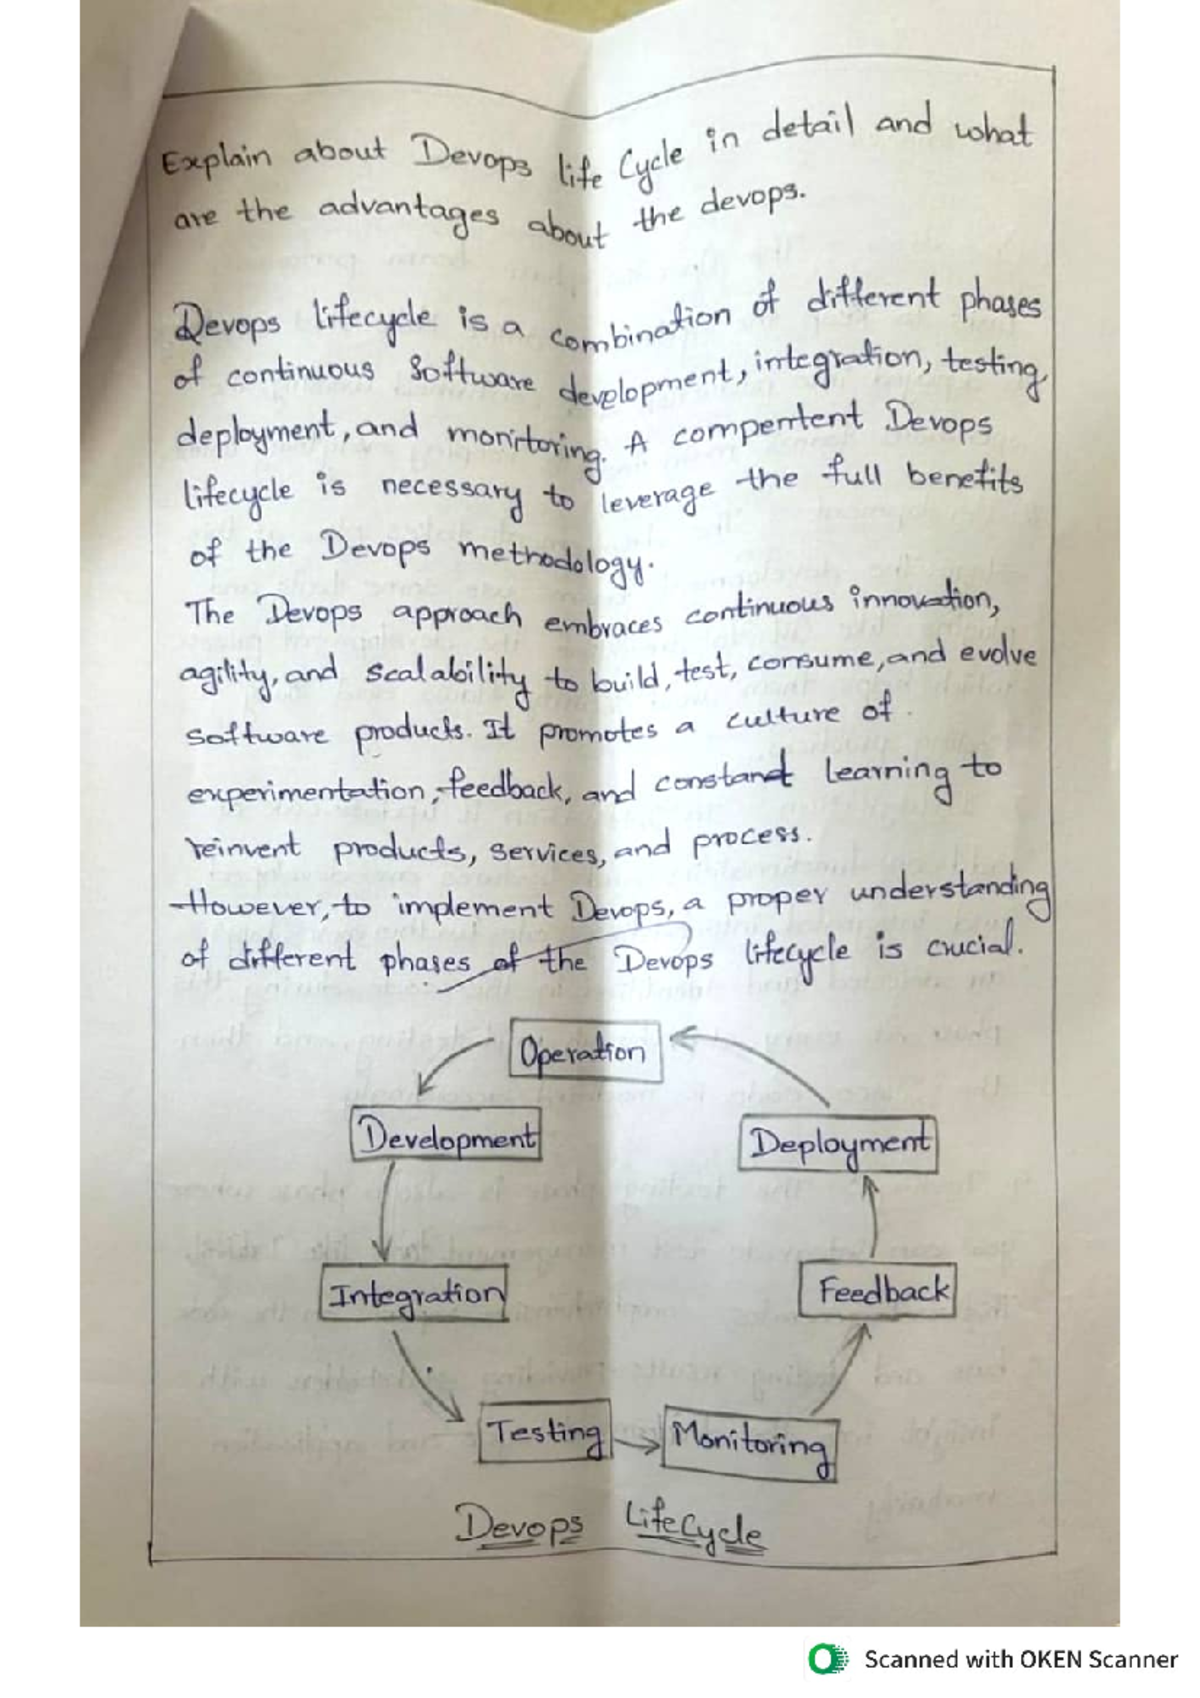 Explain about Devops life Cycle in detail and what
are the advantages about the devops.
Devops lifecycle is a combination of different phases
of continuous Software development, integration, testing,
deployment, and monitoring. A compentent Devops
lifecycle is necessary to leverage the full benefits
of the Devops methodology.
The Devops approach embraces continuous innovation,
agility, and scalability to build, test, consume, and evolve
software products. It promotes a culture of
experimentation, feedback, and constant learning to
reinvent products, services, and process.
However, to implement Devops, a proper understanding
of different phases of the Devops lifecycle is crucial.
Operation
Development
Deployment
Integration
Feedback
Testing
Monitoring
Devops LifeCycle
Scanned with OKEN Scanner